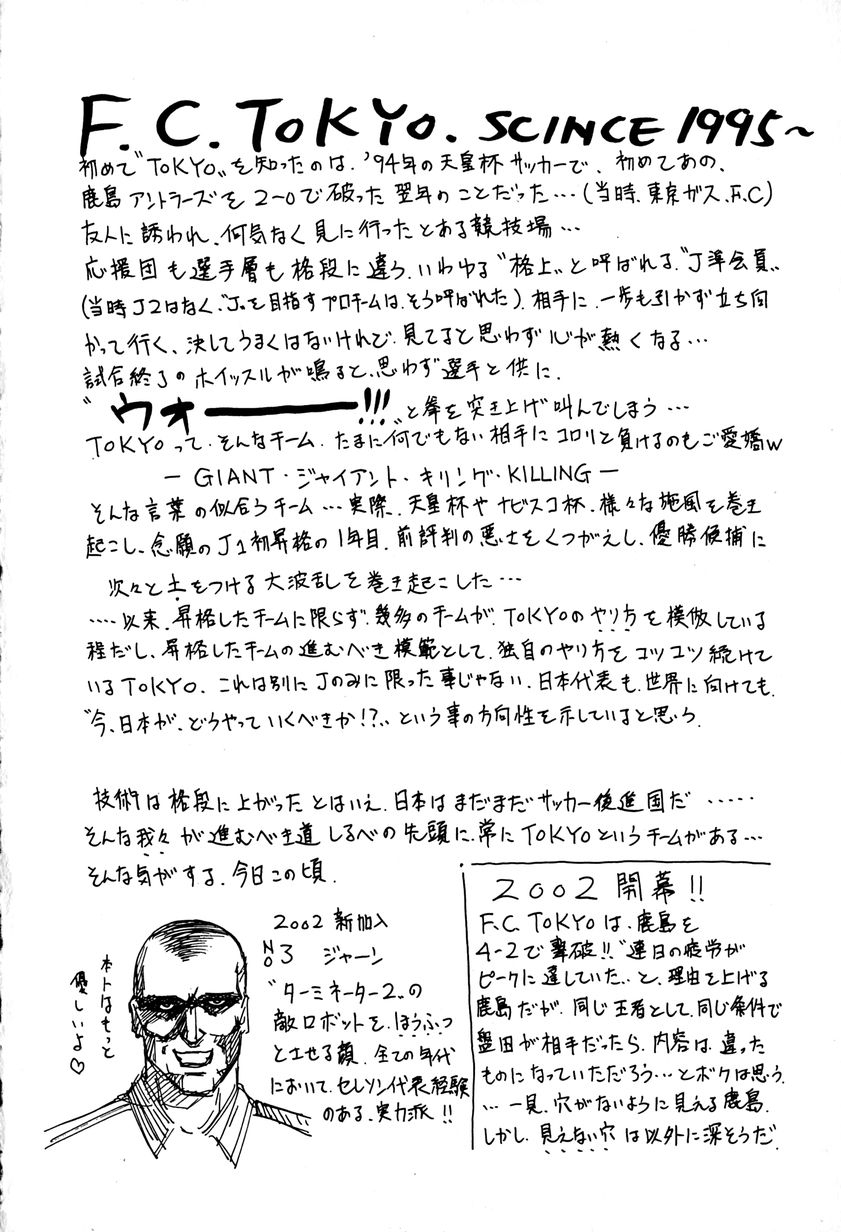 F.C.TOKYO. SCINCE 1995~
初めて“TOKYO〟を知ったのは、'94年の天皇杯サッカーで、初めてあの、
鹿島アントラーズを2-0で破った翌年のことだった…(当時、東京ガス、F.C)
友人に誘われ、何気なく見に行ったとある競技場…
応援団も選手層も格段に違う、いわゆる“格上〟と呼ばれる、“J準会員〟
(当時J2はなく、“J〟を目指すプロチームは、そう呼ばれた)、相手に、一歩も引かず立ち向
かって行く、決してうまくはないけれど、見てると思わず心が熱くなる…
試合終了のホイッスルが鳴ると、思わず選手と供に、
“ウォーーー!!!〟と拳を突き上げ叫んでしまう…
TOKYOって、そんなチーム、たまに何でもない相手にコロリと負けるのもご愛嬌w
― GIANT・ジャイアント・キリング・KILLING ―
そんな言葉の似合うチーム…実際、天皇杯やナビスコ杯、様々な旋風を巻き
起こし、念願のJ1初昇格の1年目、前評判の悪さをくつがえし、優勝候補に
次々と土をつける大波乱を巻き起こした…
‥‥以来、昇格したチームに限らず、幾多のチームが、TOKYOのやり方を模倣している
程だし、昇格したチームの進むべき模範として、独自のやり方をコツコツ続けて
いるTOKYO、これは別にJのみに限った事じゃない、日本代表も、世界に向けても、
“今、日本が、どうやっていくべきか!?〟という事の方向性を示していると思う、
技術は格段に上がったとはいえ、日本はまだまだサッカー後進国だ‥‥‥
そんな我々が進むべき道しるべの先頭に、常にTOKYOというチームがある…
そんな気がする、今日この頃、
ホントはもっと
優しいよ♡
2002 新加入
No3 ジャーン
“ターミネーター2〟の
敵ロボットを、ほうふつ
とさせる顔、全ての年代
において、セレソン代表経験
のある、実力派!!
2002 開幕!!
F.C.TOKYOは、鹿島を
4-2で撃破!!“連日の疲労が
ピークに達していた〟と、理由を上げる
鹿島だが、同じ王者として、同じ条件で
磐田が相手だったら、内容は、違った
ものになっていただろう…とボクは思う、
…一見、穴がないように見える鹿島、
しかし、見えない穴は以外に深そうだ、